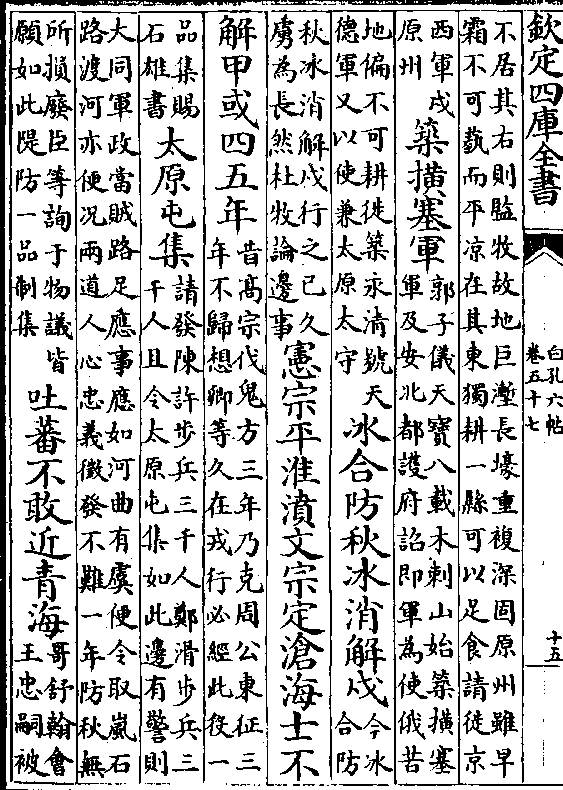 欽定四庫全書
白孔六帖
卷五十七
十五
不居其右則監牧故地巨壍長壕重複深固原州雖早
霜不可蓺而平凉在其東獨耕一縣可以足食請徙京
西軍戍
原州
築橫塞軍
郭子儀天寶八載木剌山始築橫塞
軍及安北都護府詔即軍為使俄苦
地偏不可耕徙築永清號天
德軍又以使兼太原太守
冰合防秋冰消解戍
今冰
合防
秋冰消解戍行之已久
虜為長然杜牧論邊事
憲宗平淮濆文宗定滄海士不
解甲或四五年
昔高宗代鬼方三年乃克周公東征三
年不歸想卿等久在戎行必經此役一
品集賜
石雄書
太原屯集
請發陳許步兵三千人鄭滑步兵三
千人且令太原屯集如此邊有警則
大同軍政當賊路足應事應如河曲有虞便令取嵐石
路渡河亦便况兩道人心忠義徵發不難一年防秋無
所損廢臣等詢于物議皆
願如此隄防一品制集
吐蕃不敢近青海
哥舒翰會
王忠嗣被